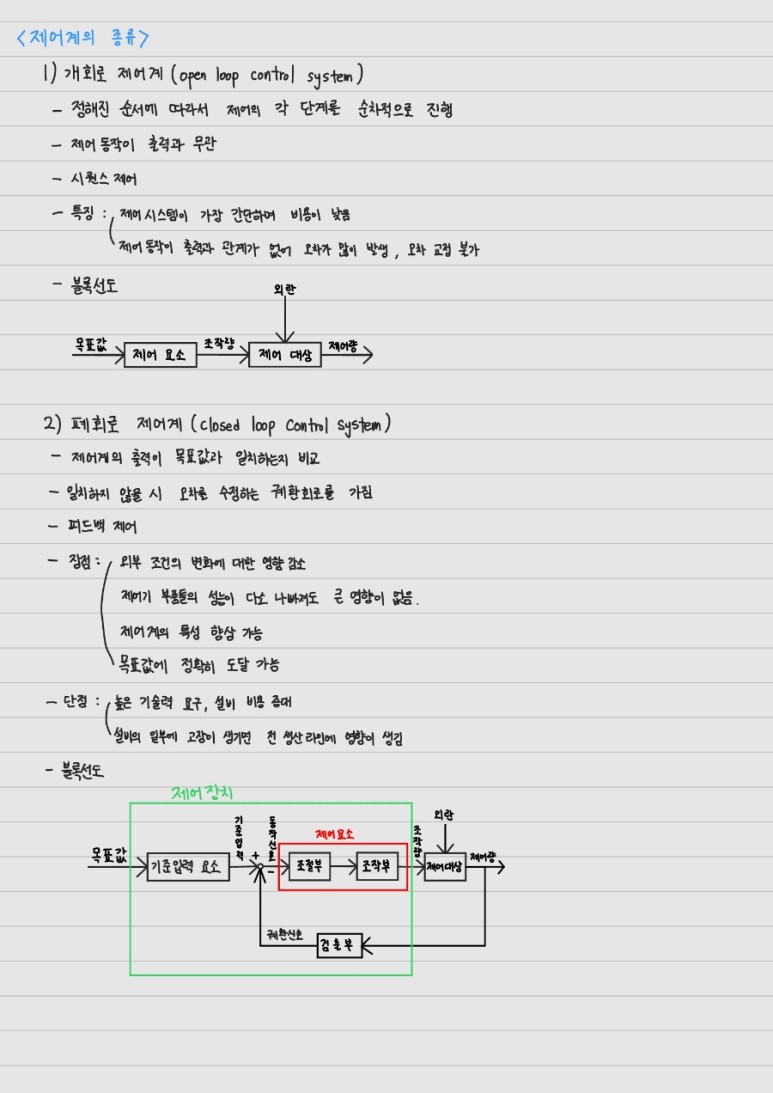 <제어계의 종류>
1) 개회로 제어계 (open loop control system)
- 정해진 순서에 따라서 제어의 각 단계를 순차적으로 진행
- 제어 동작이 출력과 무관
- 시퀀스 제어
- 특징 : 제어 시스템이 가장 간단하며 비용이 낮음
제어 동작이 출력과 관계가 없어 오차가 많이 발생, 오차 교정 불가
- 블록선도
외란
목표값
제어 요소
조작량
제어 대상
제어량
2) 폐회로 제어계 (closed loop control system)
- 제어계의 출력이 목표값과 일치하는지 비교
- 일치하지 않을 시 오차를 수정하는 궤환회로를 가짐
- 피드백 제어
- 장점 : 외부 조건의 변화에 대한 영향 감소
제어기 부품들의 성능이 다소 나빠져도 큰 영향이 없음.
제어계의 특성 향상 가능
목표값에 정확히 도달 가능
- 단점 : 높은 기술력 요구, 설비 비용 증대
설비의 일부에 고장이 생기면 전 생산 라인에 영향이 생김
- 블록선도
제어 장치
목표값
기준 입력 요소
기준입력
+
-
동작신호
제어요소
조절부
조작부
조작량
외란
제어대상
제어량
궤환신호
검출부